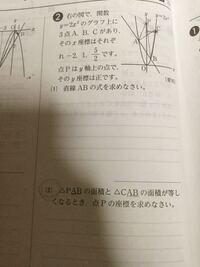 ❷ 右の図で, 関数
y=2x²のグラフ上に
3点A, B, Cがあり,
そのx座標はそれぞ
れ-2, 1, 5/2です。
点Pはy軸上の点で,
そのy座標は正です。
(1) 直線ABの式を求めなさい。
(2) △PABの面積と△CABの面積が等し
くなるとき, 点Pの座標を求めなさい。
y=2x²
B
O
❶